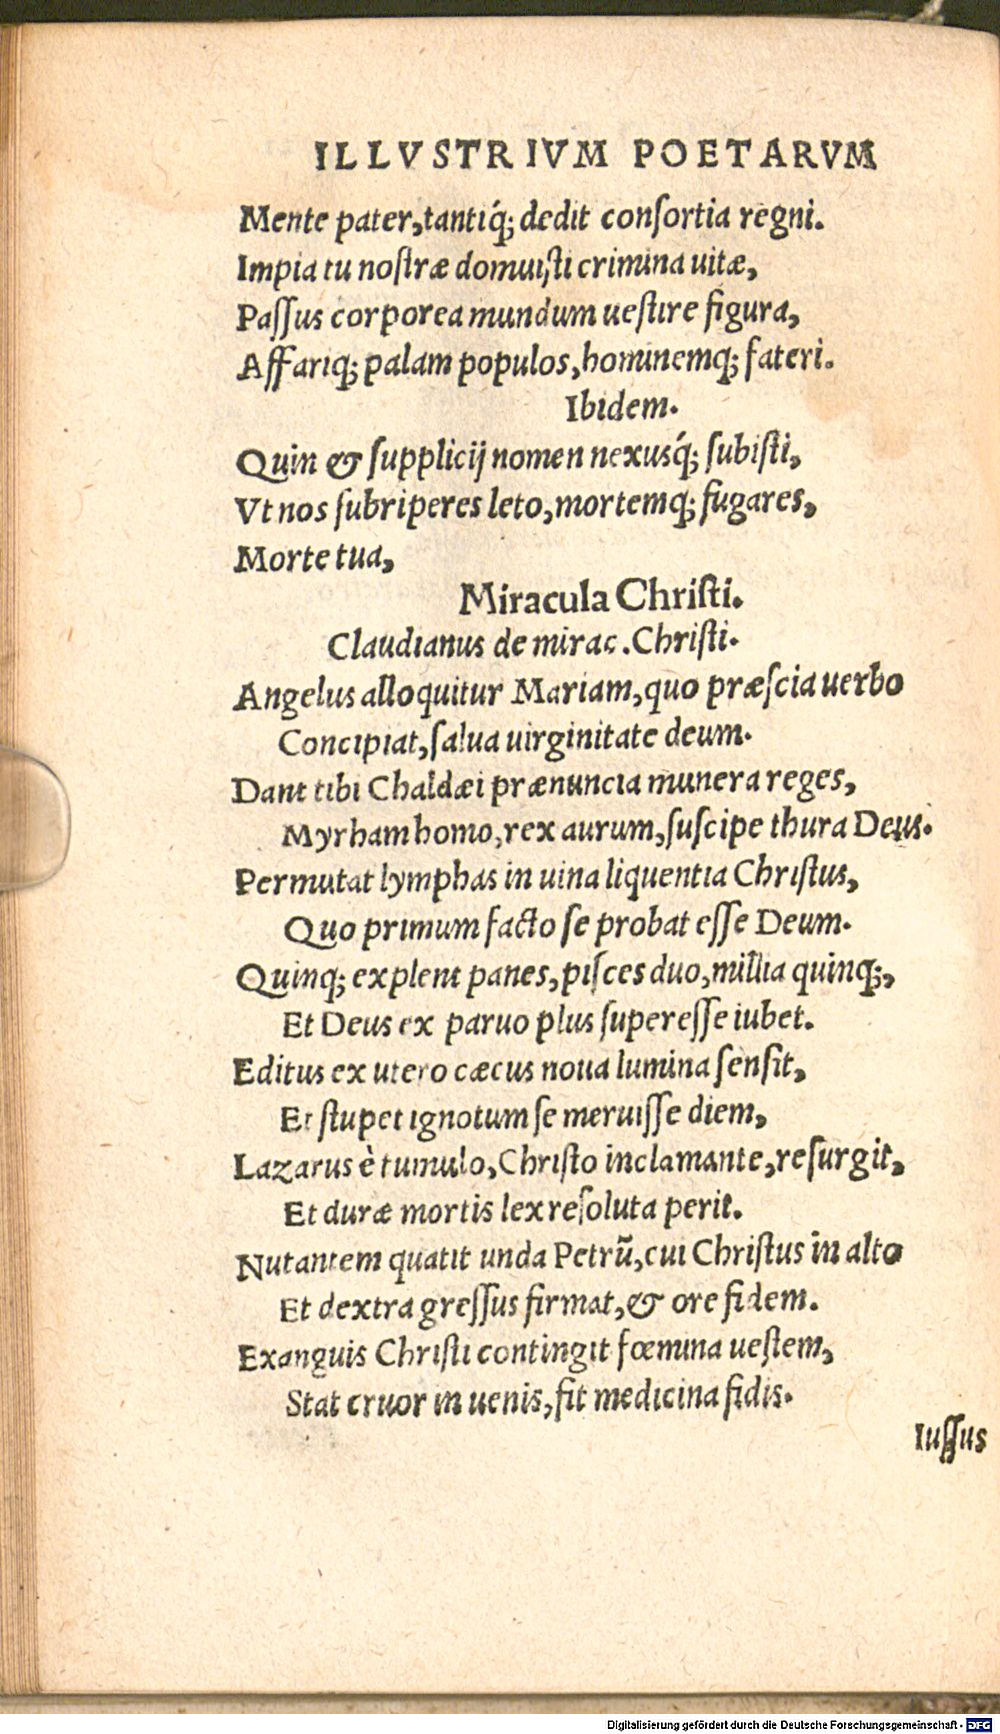 ILLVSTRIVM POETARVM
Mente pater, tantiq́; dedit conſortia regni.
Impia tu noſtræ domuiſti crimina uitæ,
Paſſus corporea mundum ueſtire figura,
Affariq; palam populos, hominemq; fateri.
Ibidem.
Quin & ſupplicij nomen nexusq́; ſubiſti,
Vt nos ſubriperes leto, mortemq; fugares,
Morte tua,
Miracula Chriſti.
Claudianus de mirac. Chriſti.
Angelus alloquitur Mariam, quo præſcia uerbo
Concipiat, ſalua uirginitate deum.
Dant tibi Chaldæi prænuncia munera reges,
Myrham homo, rex aurum, ſuſcipe thura Deus.
Permutat lymphas in uina liquentia Chriſtus,
Quo primum facto ſe probat eſſe Deum.
Quinq; explent panes, piſces duo, millia quinq;,
Et Deus ex paruo plus ſupereſſe iubet.
Editus ex utero cæcus noua lumina ſenſit,
Et ſtupet ignotum ſe meruiſſe diem,
Lazarus è tumulo, Chriſto inclamante, reſurgit,
Et duræ mortis lex reſoluta perit.
Nutantem quatit unda Petrū, cui Chriſtus in alto
Et dextra greſſus firmat, & ore fidem.
Exanguis Chriſti contingit fœmina ueſtem,
Stat cruor in uenis, fit medicina fidis.
Iuſſus
Digitalisierung gefördert durch die Deutsche Forschungsgemeinschaft - DFG